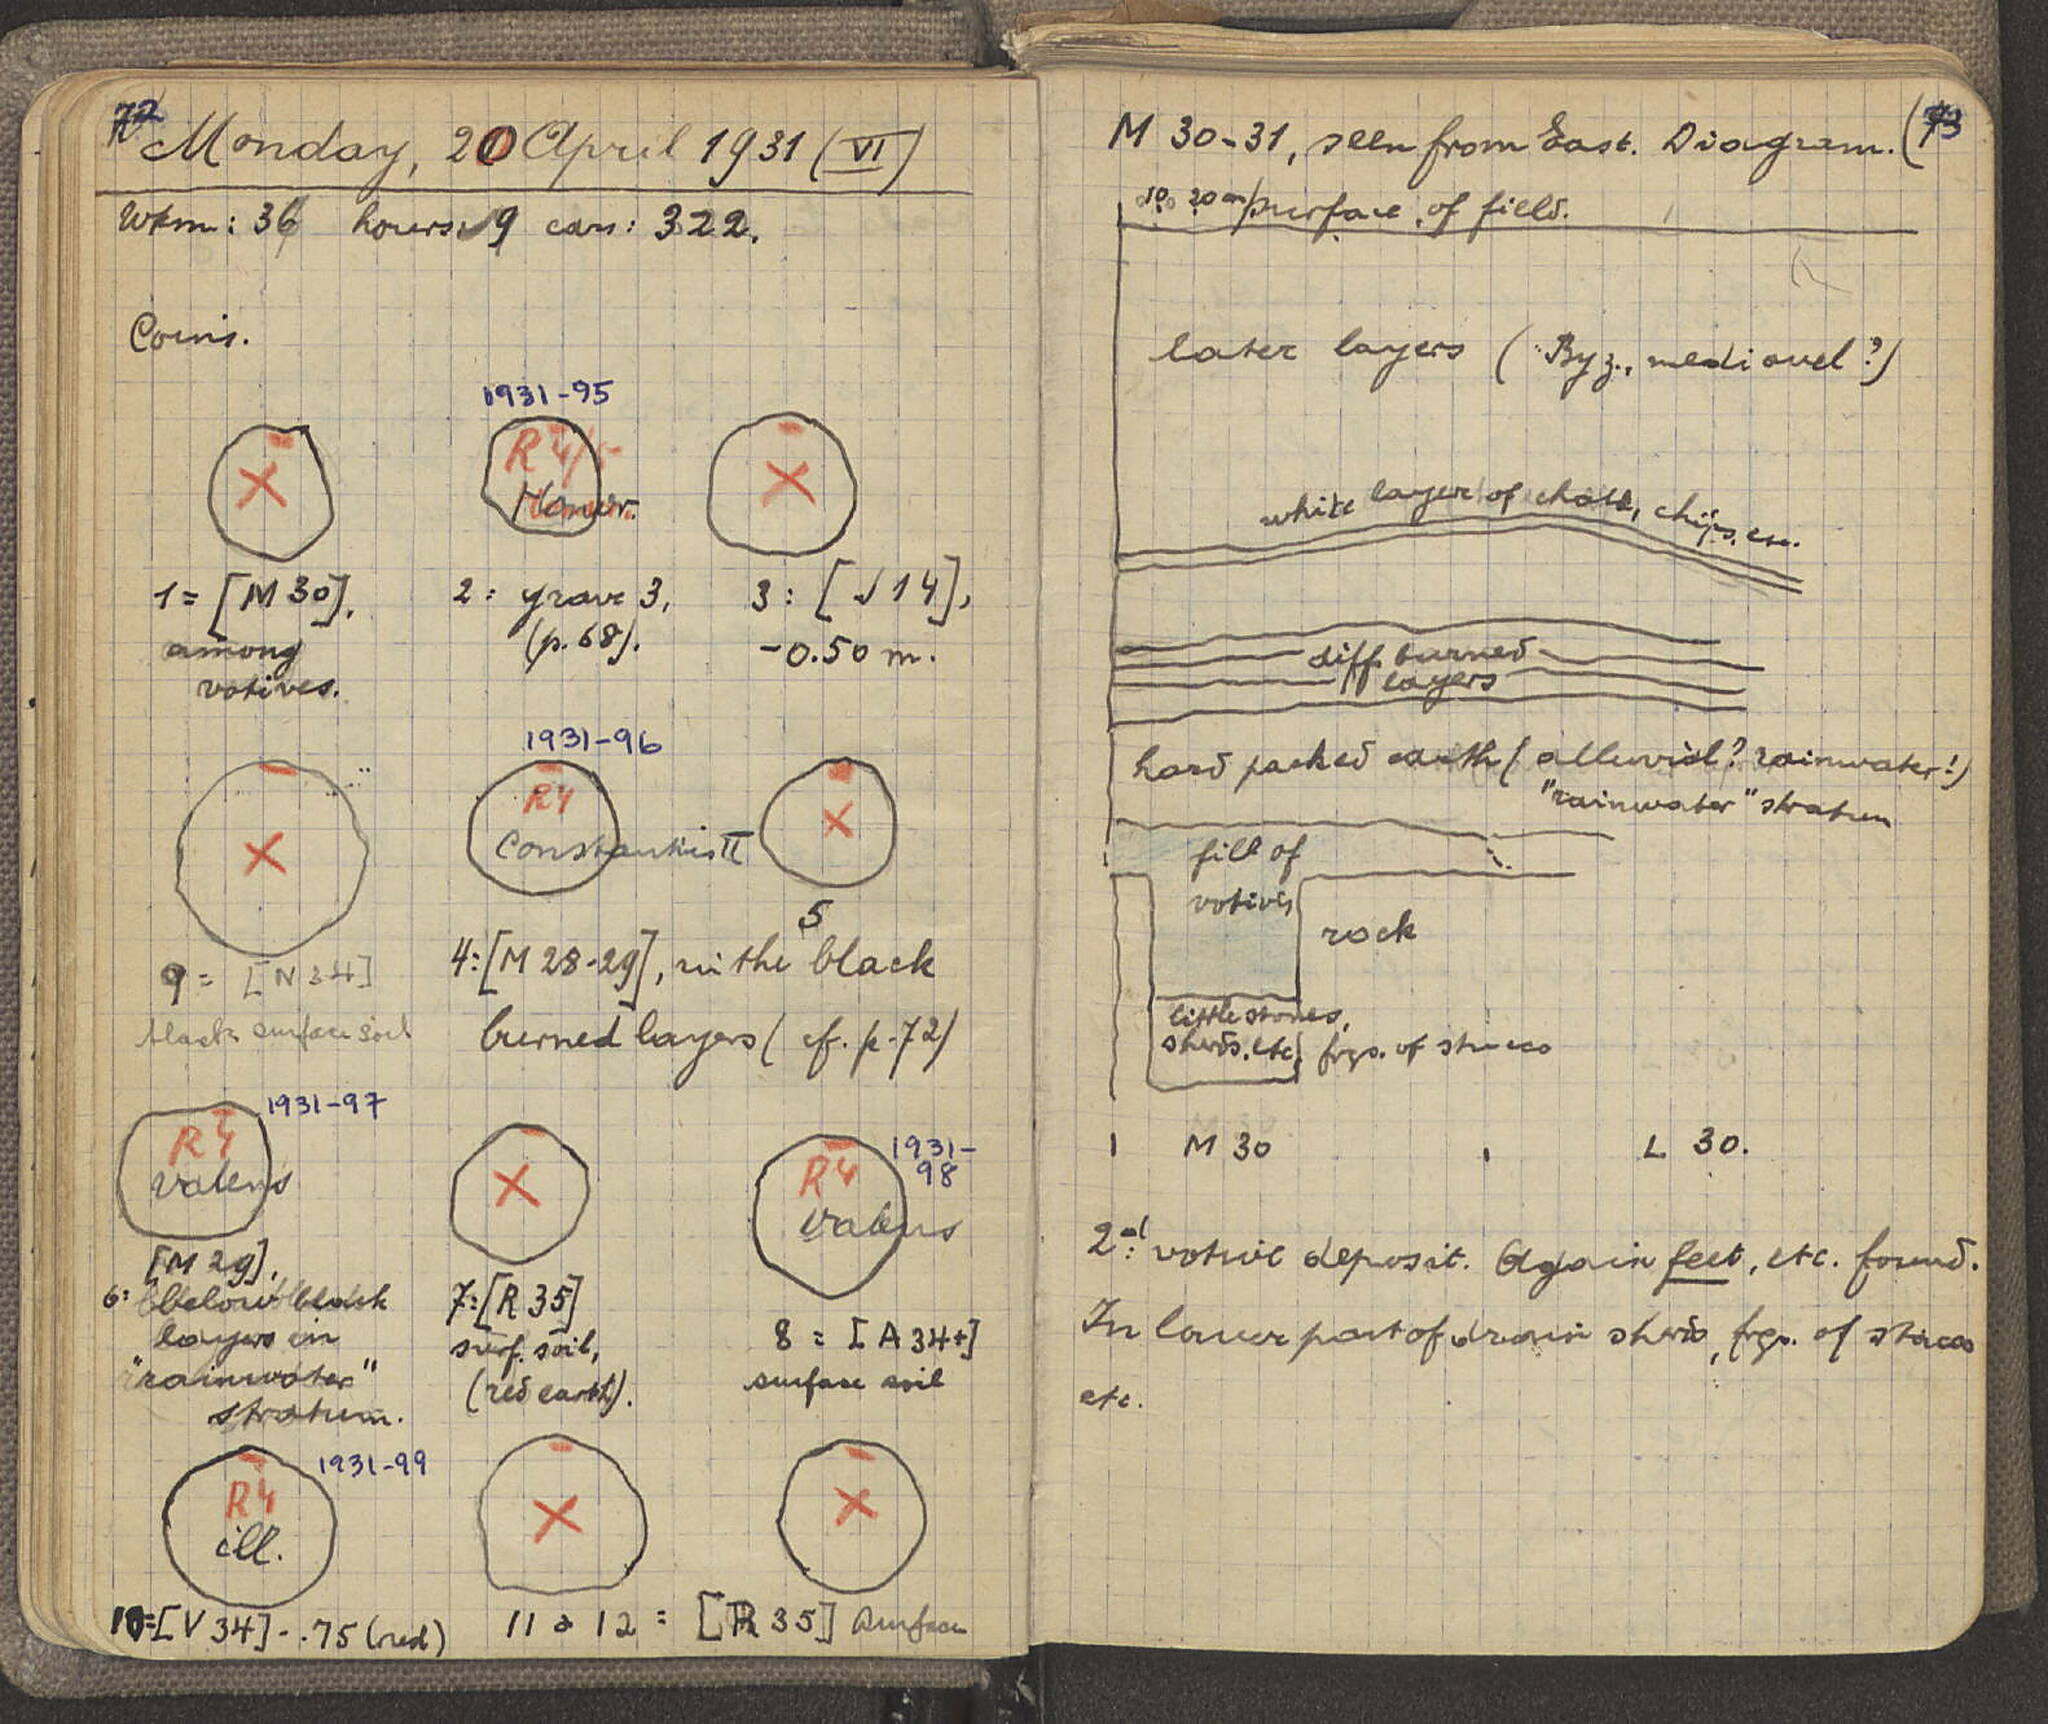 72
Monday, 20 April 1931 (VI)
Wkm: 36 hours: 9 cars: 322.
Coins.
1931-95
R 4/5
Numer.
1= [M 30],
among
votives.
2: grave 3,
(p. 68).
3: [J 14],
-0.50 m.
1931-96
R4
Constantius II
9= [N 34]
black surface soil
5
4: [M 28-29], in the black
burned layers (cf. p. 72)
1931-97
R4
Valens
1931-
98
R4
Valens
[M 29],
6: below black
layers in
"rainwater"
stratum.
7: [R 35]
surf. soil,
(red earth).
8 = [A 34+]
surface soil
1931-99
R4
ill.
10=[V 34] -.75 (red)
11 a 12 = [R 35] surface
73
M 30-31, seen from East. Diagram.
surface of field.
later layers (Byz., mediavel?)
white layer of chalk, chips, etc.
diff. burned
layers
hard packed earth (alluvial? rainwater!)
"rainwater" stratum
fill of
votives
rock
little stones,
sherds, etc, frgs. of stucco
M 30
L 30.
2nd: votive deposit. Again feet, etc. found.
In lower part of drain sherds, frgs. of stucco
etc.